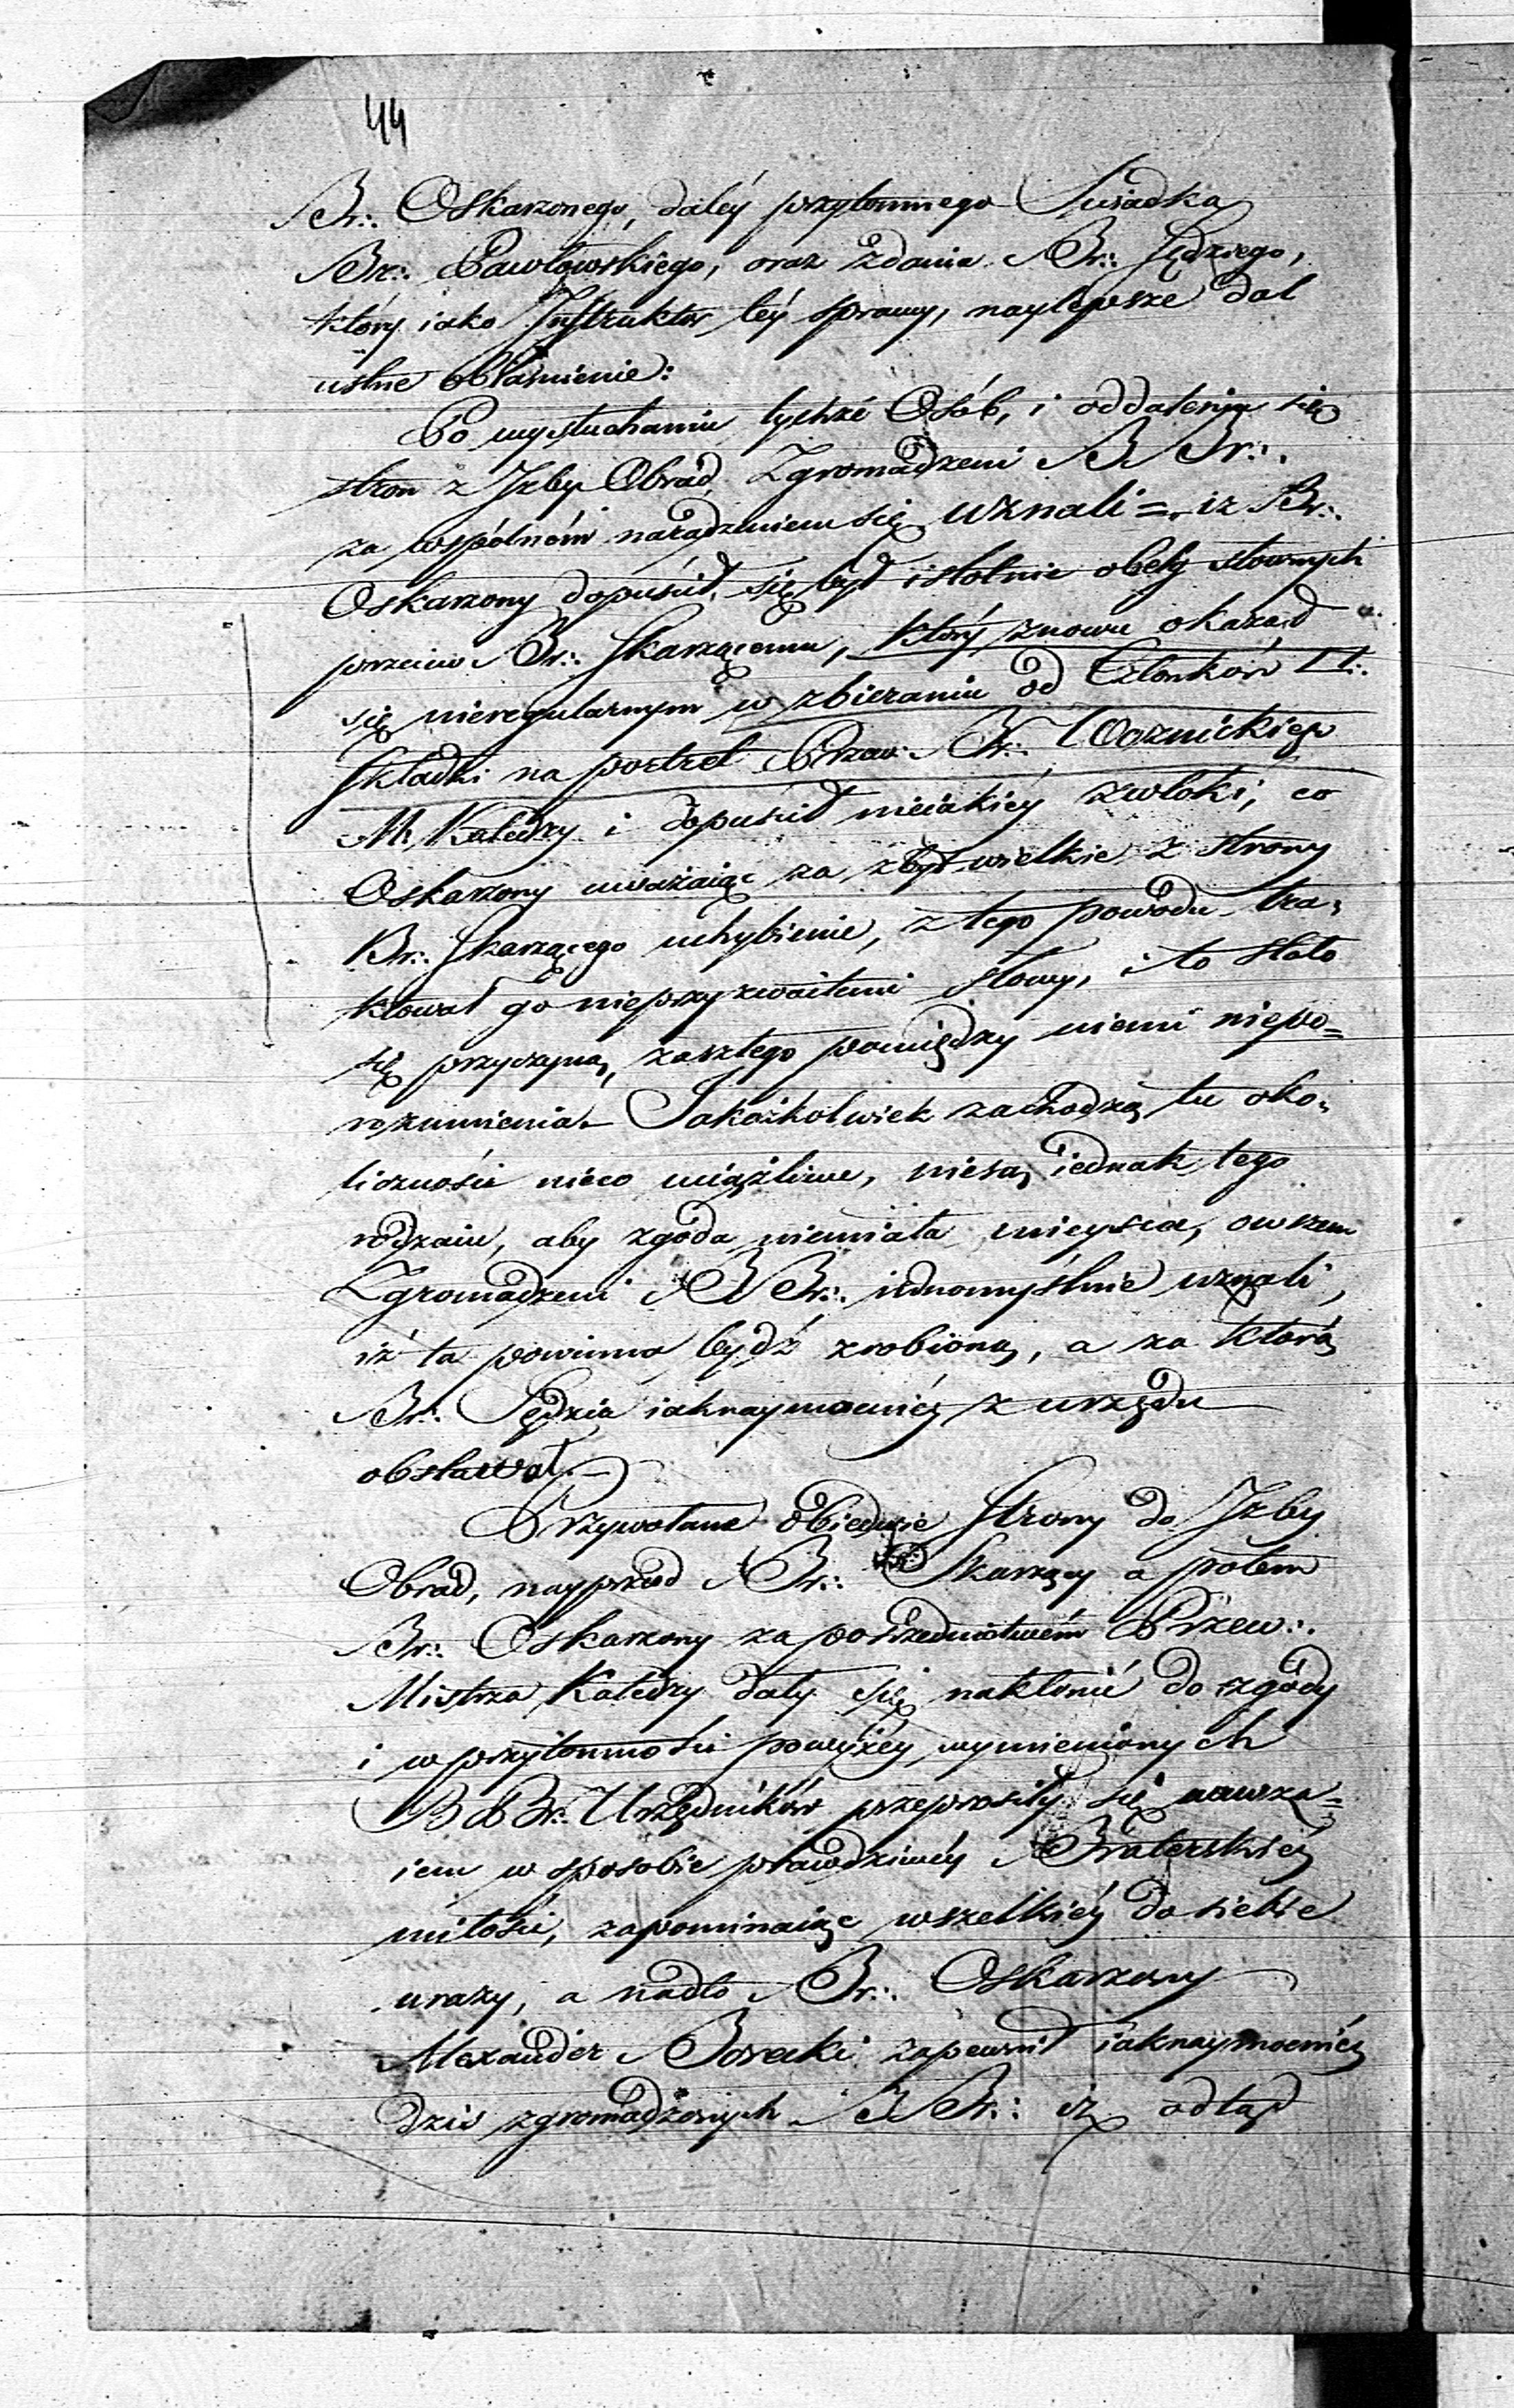 44
Br∴ Oskarzonego, daléy przytomnego Swiadka
Br∴ Pawłowskiego, oraz zdania Br∴ Sędziego,
który iako Instruktor téy sprawy, naylepsze dał
ustne obiasnienie:
Po wysłuchaniu tychże Osób, i oddaleniu się
stron z Izby Obrad, Zgromadzeni BBr∴
za wspólnem naradzeniem się uznali = iz Br∴
Oskarzony dopuścił się był istotnie obelg słownych
przeciw Br∴ Skarzącemu, który znowu okazał
się nieregularnym w zbieraniu od Członków □∴
składki na portret Przew∴ Br∴ Woznickiego
M. Katedry i dopuścił nieiakiéy zwłoki, co
Oskarzony uważaiąc za zbyt wielkie z strony
Br∴ Skarzącego uchybienie, z tego powodu tra=
ktował go nieprzyzwoitemi słowy, i to stało
się przyczyną, zaszłego pomiędzy niemi niepo=
rozumienia. Jakożkolwiek zachodzą tu oko=
liczności nieco uciążliwe, niesą iednak tego
rodzaiu, aby zgoda niemiała mieysca, owszem
Zgromadzeni BBr∴ iednomyślnie uznali,
iż ta powinna bydź zrobioną, a za którą
Br∴ Sędzia iaknaymocniéy z urzędu
obstawał.
Przywołane obiedwie strony do Izby
Obrad, nayprzod Br∴ Skarzący a potem
Br∴ Oskarzony za pośrzednictwém Przew∴
Mistrza Katedry dały się nakłonić do zgody
i w przytomności powyżéy wymienionych
BBr∴ Urzędników przeprosiły się nawza=
iem w sposobie prawdziwéy Braterskiéy
miłości, zapominaiąc wszelkiéy do siebie
urazy, a nadto Br∴ Oskarzony
Alexander Borecki zapewnił iaknaymocniéy
dziś zgromadzonych BBr∴ iż odtąd